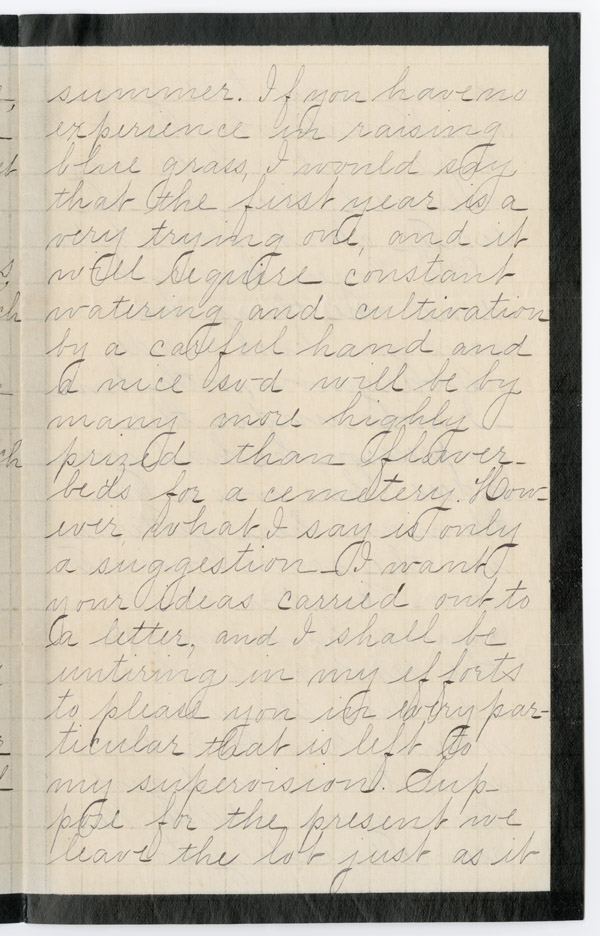 summer. If you have no
experience in raising
blue grass, I would say
that the first year is a
very trying one, and it
will require constant
watering and cultivation
by a careful hand and
a nice sod will be by
many more highly
prized than flower-
beds for a cemetery. How-
ever what I say is only
a suggestion - I want
your ideas carried out to
a letter, and I shall be
untiring in my efforts
to please you in every par-
ticular that is left to
my supervision. Sup-
pose for the present we
leave the lot just as it